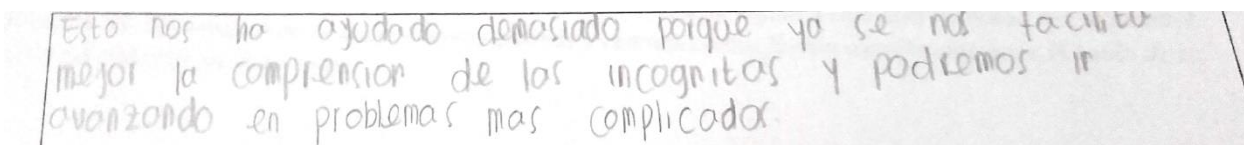 Esto nos ha ayudado demasiado porque ya se nos facilita
mejor la comprension de las incognitas y podremos ir
avanzando en problemas mas complicados